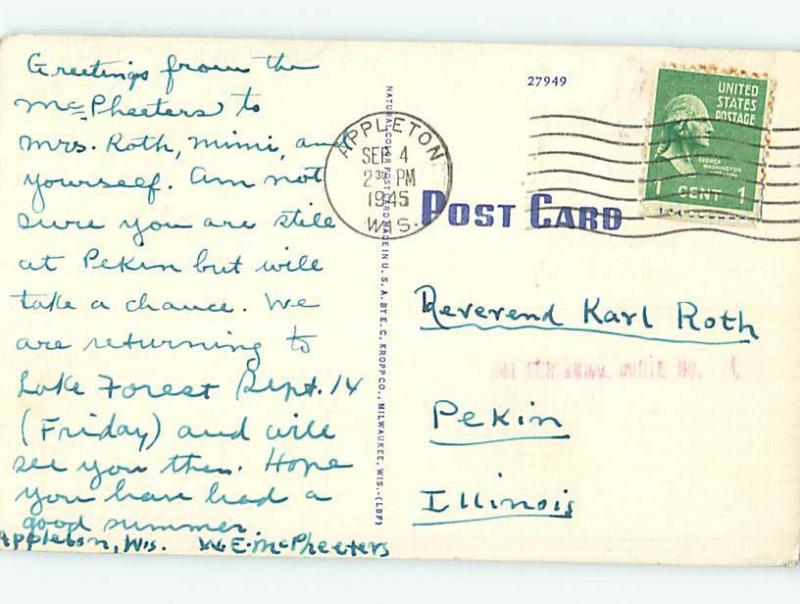 Greetings from the
McPheeters to
Mrs. Roth, Mimi, and
yourself. Am not
sure you are still
at Pekin but will
take a chance. We
are returning to
Lake Forest Sept. 14
(Friday) and will
see you then. Hope
you have had a
good summer.
Appleton, Wis. W.E. McPheeters
NATURAL COLOR POST CARD MADE IN U. S. A. BY E. C. KROPP CO., MILWAUKEE, WIS. (LBF)
27949
APPLETON
SEP 4
2 30 PM
1945
WIS.
UNITED
STATES
POSTAGE
GEORGE
WASHINGTON
1 CENT 1
POST CARD
Reverend Karl Roth
NO.
Pekin
Illinois